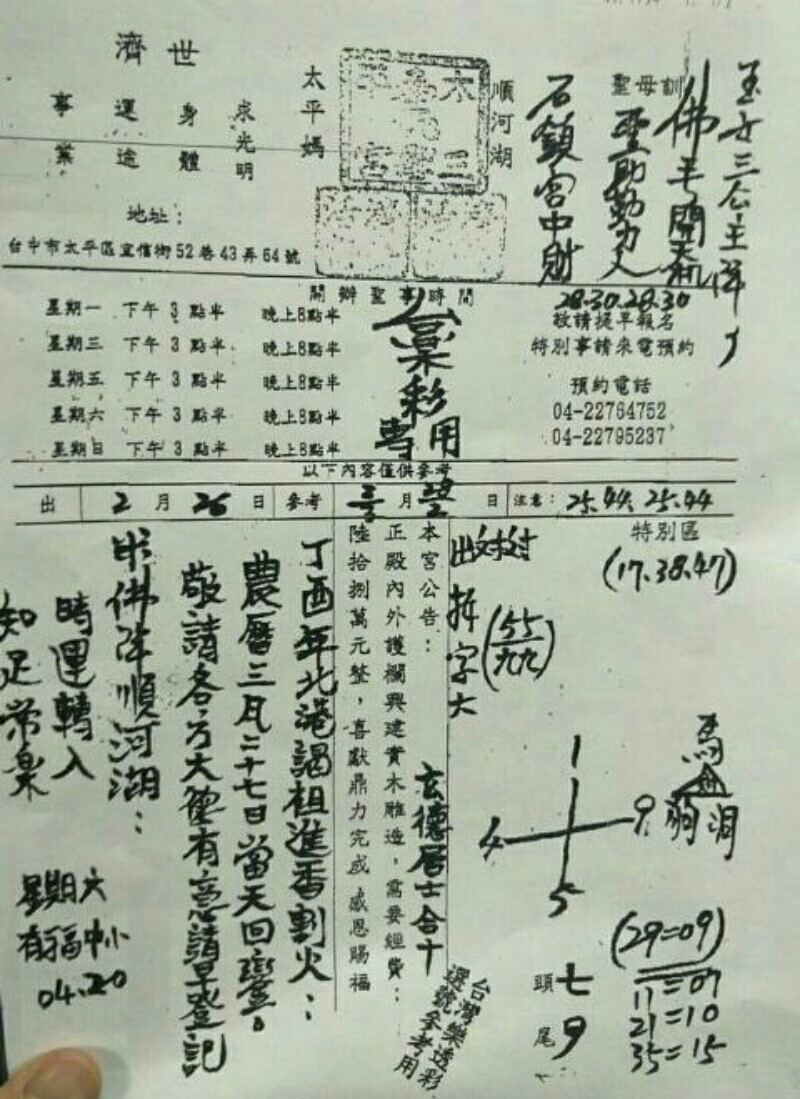 玉女三公主降
佛手開天机
聖母訓
聖助勤力人
石鎮宮中財
28.30.28.30
順河湖
太平媽
世濟
求光明
身體
運途
事業
地址：
台中市太平區宜信街52巷43弄64號
開辦聖事時間
星期一 下午3點半 晚上8點半
星期三 下午3點半 晚上8點半
星期五 下午3點半 晚上8點半
星期六 下午3點半 晚上8點半
星期日 下午3點半 晚上8點半
公益彩
專用
敬請提早報名
特別事請來電預約
預約電話
04-22764752
04-22795237
以下內容僅供參考
出 2月26日 參考 月 日 注意：25.44.25.44
特別區
(17.38.47)
出對付
拆字大
(55/九九)
1
4 9
5
馬
(29=09)
11=07
21=10
35=15
頭 七
尾 9
本宮公告：
正殿內外護欄興建實木雕造，需要經費：
陸拾捌萬元整，喜獻鼎力完成 感恩賜福
玄德居士合十
丁酉年北港謁祖進香割火：
農曆三月二十七日當天回鑾。
敬請各方大德有意請早登記
佛降順河湖：
時運轉入
知足常樂
星期六
有福中小
04.20
台灣樂透彩
選號參考用